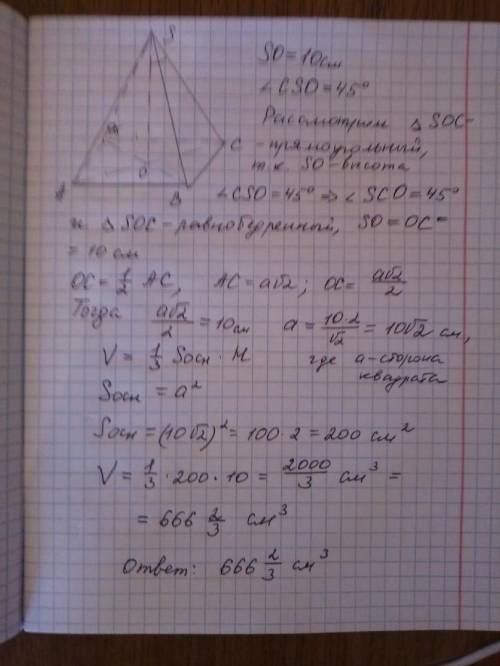 S
SO = 10 см
∠CSO = 45°
Рассмотрим △SOC -
- прямоугольный,
т.к. SO - высота
C
M
O
A
B
∠CSO = 45° ⇒ ∠SCO = 45°
и △SOC - равнобедренный, SO = OC =
= 10 см
OC = 1/2 AC, AC = a√2; OC = a√2/2
Тогда a√2/2 = 10 см a = 10·2/√2 = 10√2 см,
V = 1/3 Sосн · H где a - сторона
квадрата
Sосн = a²
Sосн = (10√2)² = 100 · 2 = 200 см²
V = 1/3 · 200 · 10 = 2000/3 см³ =
= 666 2/3 см³
Ответ: 666 2/3 см³